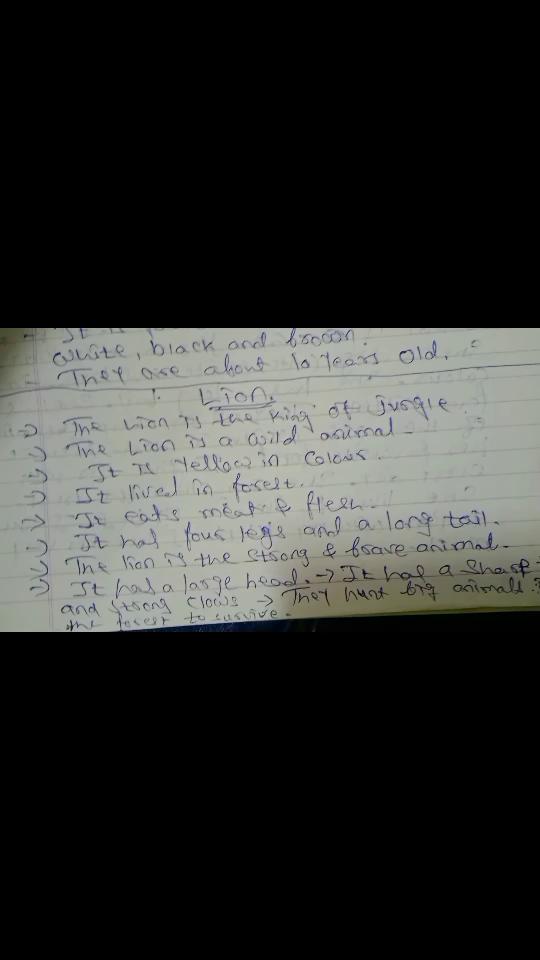 - It is
white, black and brown.
- They are about 10 years old.
Lion.
→ The Lion is the king of Jungle.
→ The Lion is a wild animal.
→ It is Yellow in Colour.
→ It lived in forest.
→ It eats meat & flesh.
→ It has four legs and a long tail.
→ The lion is the strong & brave animal.
→ It has a large head. → It has a sharp
and strong claws → They hunt big animals
the forest to survive.